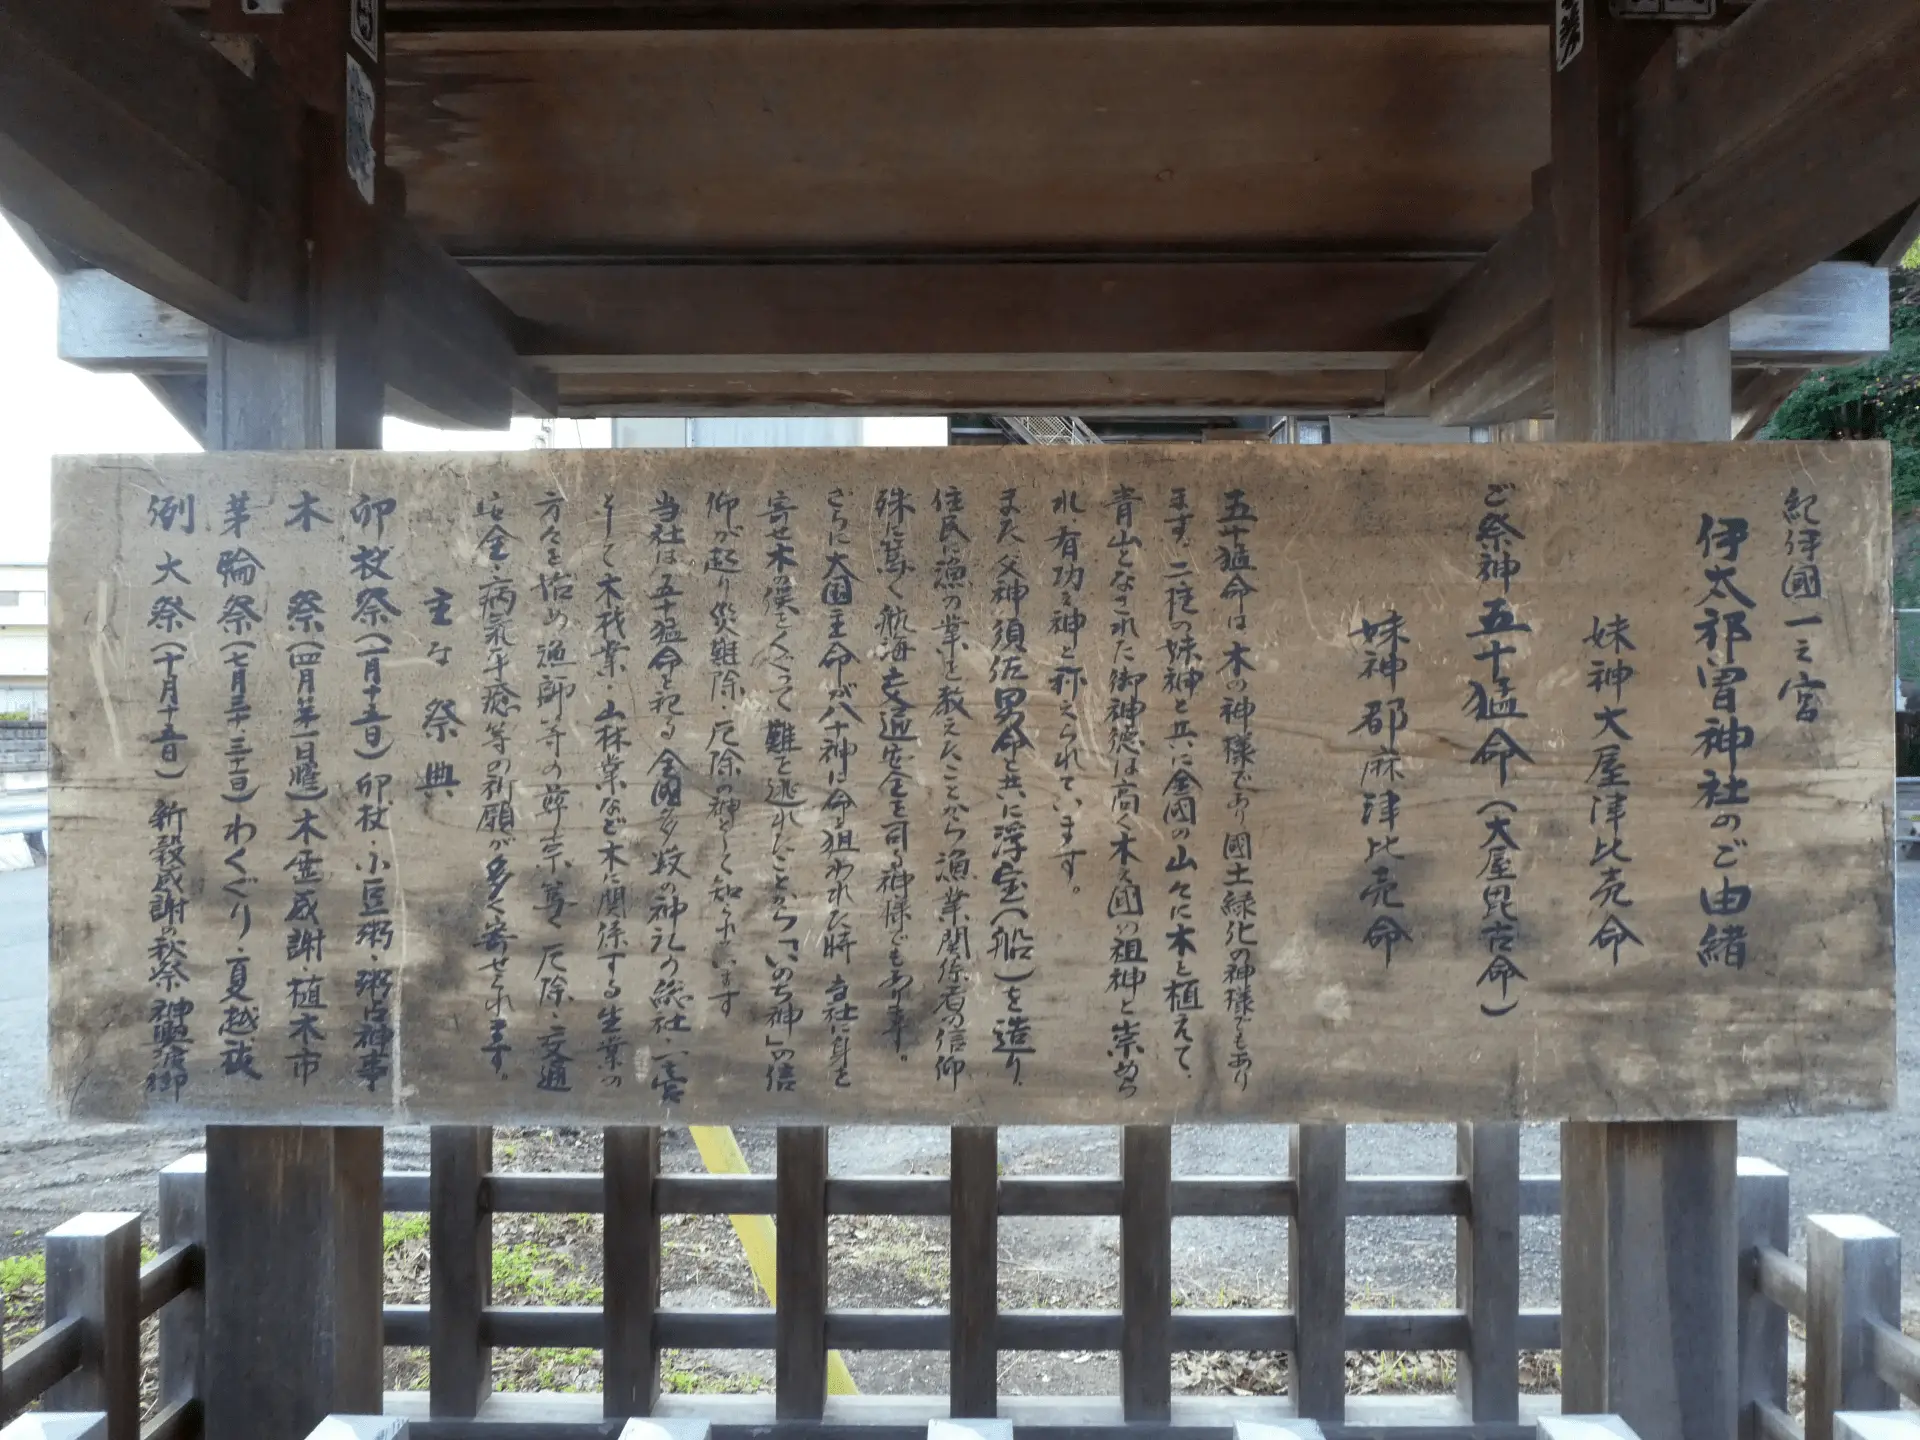 紀伊國一之宮
伊太祁曽神社のご由緒
妹神大屋津比売命
ご祭神五十猛命(大屋毘古命)
妹神都麻津比売命
五十猛命は木の神様であり國土緑化の神様でもあり
ます。二柱の妹神と共に全國の山々に木を植えて、
青山となされた御神徳は高く木の國の祖神と崇めら
れ、有功の神と称えられています。
また父神須佐男命と共に浮宝(船)を造り、
住民に漁の業を教えたことから漁業関係者の信仰
殊に篤く航海交通安全を司る神様でもあります。
さらに大国主命が八十神に命を狙われた時当社に身を
寄せ木の俣をくぐって難を逃れたことから「いのち神」の信
仰が起り災難除・厄除の神としてよく知られています
当社は五十猛命を祀る全國多数の神社の総社・一の宮
そして木材業・山林業など木に関係する生業の
方々を始め漁師等の尊崇篤く厄除・交通
安全・病気平癒等の祈願が多く寄せられます。
主な祭典
卯杖祭(一月十五日)卯杖・小豆粥・粥占神事
木祭(四月第一日曜)木霊感謝・植木市
茅輪祭(七月三十・三十一日)わくぐり・夏越祓
例大祭(十月十五日)新穀感謝の秋祭神輿渡御